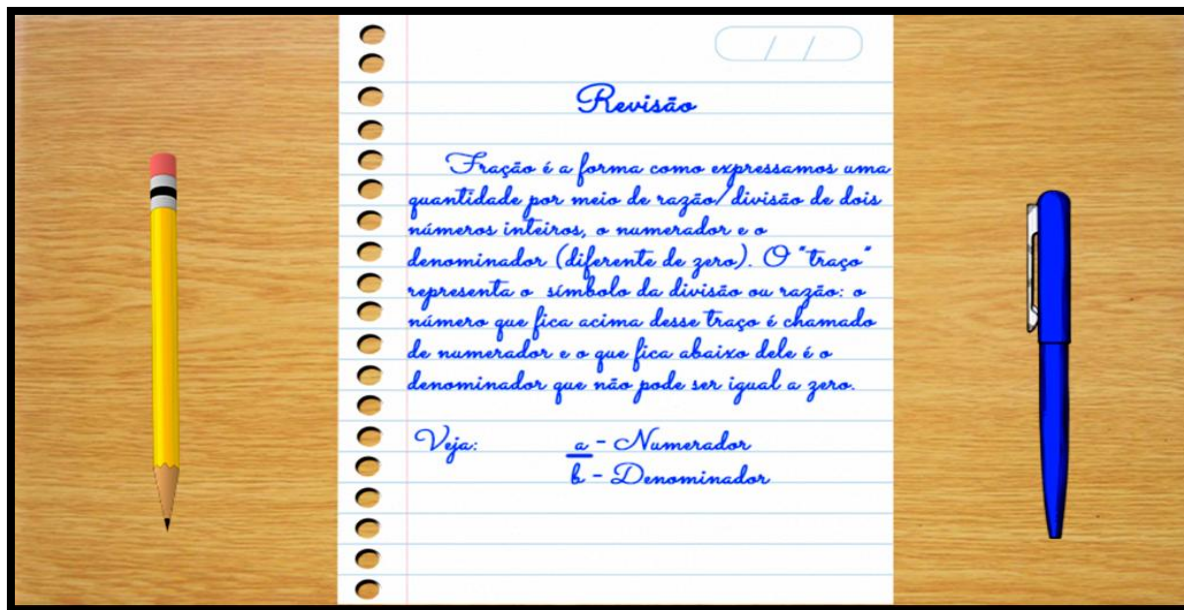 / /
Revisão
Fração é a forma como expressamos uma
quantidade por meio de razão/divisão de dois
números inteiros, o numerador e o
denominador (diferente de zero). O "traço"
representa o símbolo da divisão ou razão: o
número que fica acima desse traço é chamado
de numerador e o que fica abaixo dele é o
denominador que não pode ser igual a zero.
Veja: a - Numerador
b - Denominador